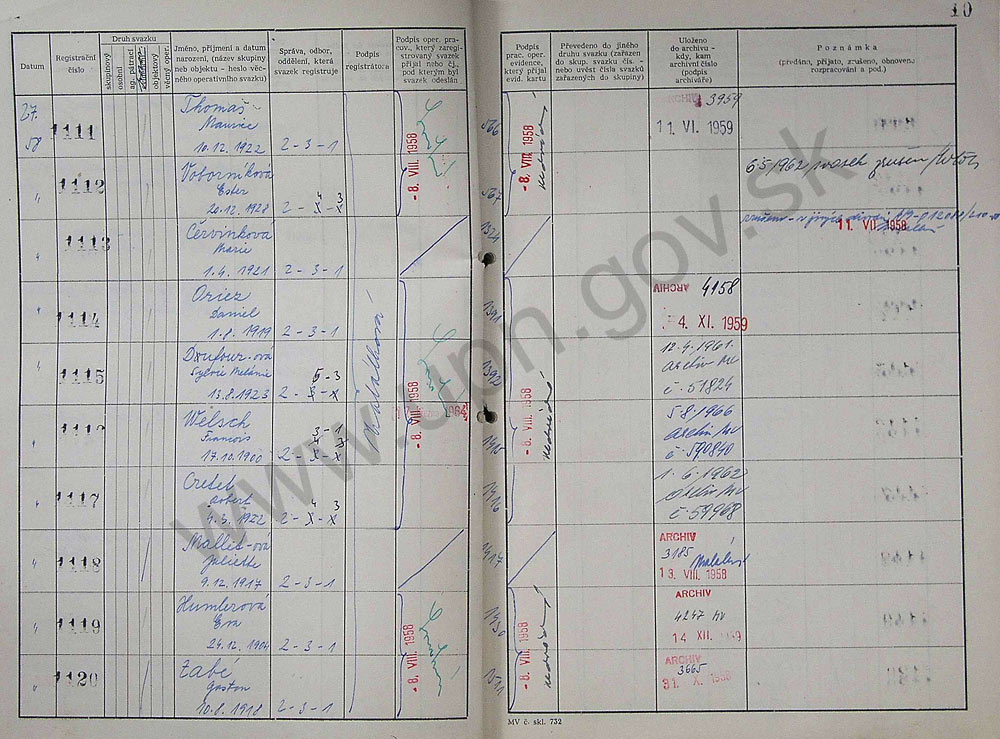 10
Datum
Registrační číslo
Druh svazku
skupinový
osobní
ag. pátrací
objektový
věd.ený oper.
Jméno, příjmení a datum
narození, (název skupiny
neb objektu - heslo věc-
ného operativního svazku)
Správa, odbor,
oddělení, která
svazek registruje
Podpis
registrátora
Podpis oper. pra-
cov., který zaregi-
stroval svazek
přijal nebo čj.,
pod kterým byl
svazek odeslán
Podpis
prac. oper.
evidence,
který přijal
evid. kartu
Převedeno do jiného
druhu svazku (zařazen
do skup. svazku čís. -
nebo uvést čísla svazků
zařazených do skupiny)
Uloženo
do archivu -
kdy, kam
archivní číslo
(podpis
archiváře)
Poznámka
(předáno, přijato, zrušeno, obnoveno
rozpracování a pod.)
27.
58
1111
Thomas
Maurice
10.12.1922 2-3-1
566
ARCHIV 3959
11 VI. 1959
- 8. VIII. 1958
- 8. VIII. 1958
1112
Voborníková
Ester
20.12.1928 2-X-X
4 3
567
6.5.1962 svazek zrušen
1113
Červinková
Marie
1.4.1921 2-3-1
1324
11. VII. 1958
1114
Oriez
Daniel
1.8.1919 2-3-1
1391
ARCHIV 4158
4. XI. 1959
1115
Dxufour-ová
Sylvie Melanie
5-3
13.8.1923 2-X-X
1392
12.4.1961.
archiv MV
č. 51824
- 8. VIII. 1958
- 8. VIII. 1958
Welsch
Francois
3-1
17.10.1900 2-X-X
5.8.1966
archiv MV
č. 590840
1117
Cretet
Robert
4 3
4.3.1922 2-X-X
1416
1.6.1962
archiv MV
č. 59968
1118
Mallet-ová
Juliette
9.12.1917 2-3-1
1417
ARCHIV
3185
13. VIII. 1958
1119
Humlerová
Eva
24.12.1904 2-3-1
1430
ARCHIV
4247 MV
14 XII. 1959
- 8. VIII. 1958
- 8. VIII. 1958
1120
Zabé
Gaston
10.8.1918 2-3-1
1511
ARCHIV
3665
31. X. 1958
MV č. skl. 732
www.upn.gov.sk